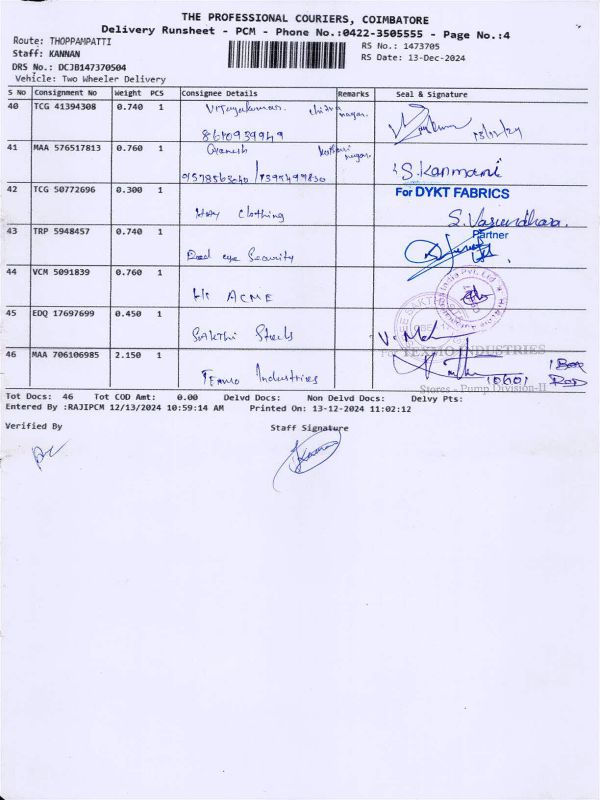 THE PROFESSIONAL COURIERS, COIMBATORE
Delivery Runsheet - PCM - Phone No.:0422-3505555 - Page No.:4
Route: THOPPAMPATTI
RS No.: 1473705
Staff: KANNAN
RS Date: 13-Dec-2024
DRS No.: DCJB147370504
Vehicle: Two Wheeler Delivery
S No Consignment No Weight PCS Consignee Details Remarks Seal & Signature
40 TCG 41394308 0.740 1 Vijayakumar nagar.
8610939949 13/12/24
41 MAA 576517813 0.760 1 Ganesh nagar.
S.Kanmani
42 TCG 50772696 0.300 1 For DYKT FABRICS
Clothing S.Vasundhara.
43 TRP 5948457 0.740 1 Partner
eye Security
44 VCM 5091839 0.760 1
ACME
45 EDQ 17697699 0.450 1
SAKTHI Steels
46 MAA 706106985 2.150 1 For TEXMO INDUSTRIES
Texmo Industries 10601 1 Box
Stores - Pump Division-II
Tot Docs: 46 Tot COD Amt: 0.00 Delvd Docs: Non Delvd Docs: Delvy Pts:
Entered By :RAJIPCM 12/13/2024 10:59:14 AM Printed On: 13-12-2024 11:02:12
Verified By Staff Signature